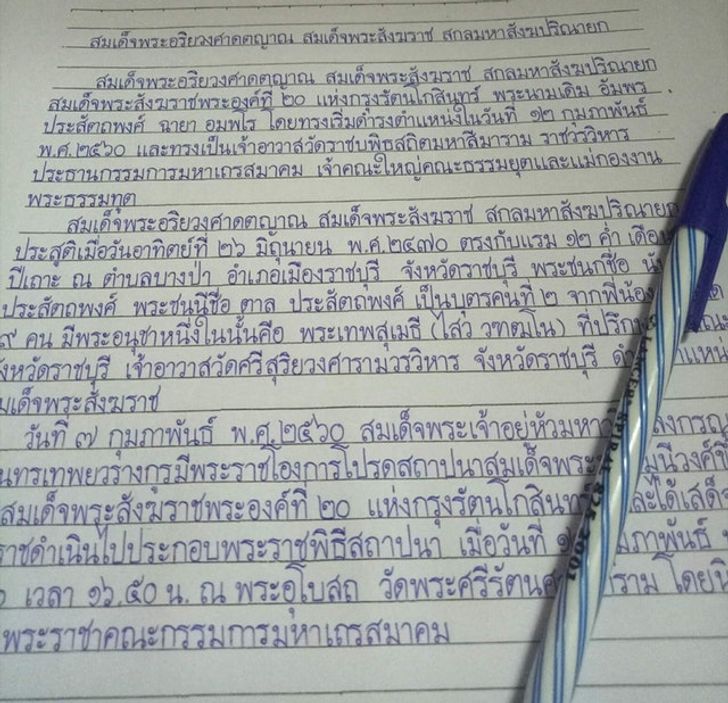 สมเด็จพระอริยวงศาคตญาณ สมเด็จพระสังฆราช สกลมหาสังฆปริณายก
สมเด็จพระอริยวงศาคตญาณ สมเด็จพระสังฆราช สกลมหาสังฆปริณายก
สมเด็จพระสังฆราชพระองค์ที่ ๒๐ แห่งกรุงรัตนโกสินทร์ พระนามเดิม อัมพร
ประสัตถพงศ์ ฉายา อมพโร โดยทรงเริ่มดำรงตำแหน่งในวันที่ ๑๒ กุมภาพันธ์
พ.ศ.๒๕๖๐ และทรงเป็นเจ้าอาวาสวัดราชบพิธสถิตมหาสีมาราม ราชวรวิหาร
ประธานกรรมการมหาเถรสมาคม เจ้าคณะใหญ่คณะธรรมยุตและแม่กองงาน
พระธรรมทูต
สมเด็จพระอริยวงศาคตญาณ สมเด็จพระสังฆราช สกลมหาสังฆปริณายก
ประสูติเมื่อวันอาทิตย์ที่ ๒๖ มิถุนายน พ.ศ.๒๔๗๐ ตรงกับแรม ๑๒ ค่ำ เดือน
ปีเถาะ ณ ตำบลบางป่า อำเภอเมืองราชบุรี จังหวัดราชบุรี พระชนกชื่อ
ประสัตถพงศ์ พระชนนีชื่อ ตาล ประสัตถพงศ์ เป็นบุตรคนที่ ๒ จากพี่น้อง
๙ คน มีพระอนุชาหนึ่งในนั้นคือ พระเทพสุเมธี (ไสว วฑฒโน)
ังหวัดราชบุรี เจ้าอาวาสวัดศรีสุริยวงศารามวรวิหาร จังหวัดราชบุรี
มเด็จพระสังฆราช
วันที่ ๗ กุมภาพันธ์ พ.ศ.๒๕๖๐ สมเด็จพระเจ้าอยู่หัวมหา ลงกรณ
นทรเทพยวรางกูรมีพระราชโองการโปรดสถาปนาสมเด็จพระ มุนีวงศ์
สมเด็จพระสังฆราชพระองค์ที่ ๒๐ แห่งกรุงรัตนโกสินท ละได้เสด็
ราชดำเนินไปประกอบพระราชพิธีสถาปนา เมื่อวันที่ มภาพันธ์
เวลา ๑๖.๕๐ น. ณ พระอุโบสถ วัดพระศรีรัตนศ าราม โดย
พระราชาคณะกรรมการมหาเถรสมาคม
LANCER SPIRAL 825 2001